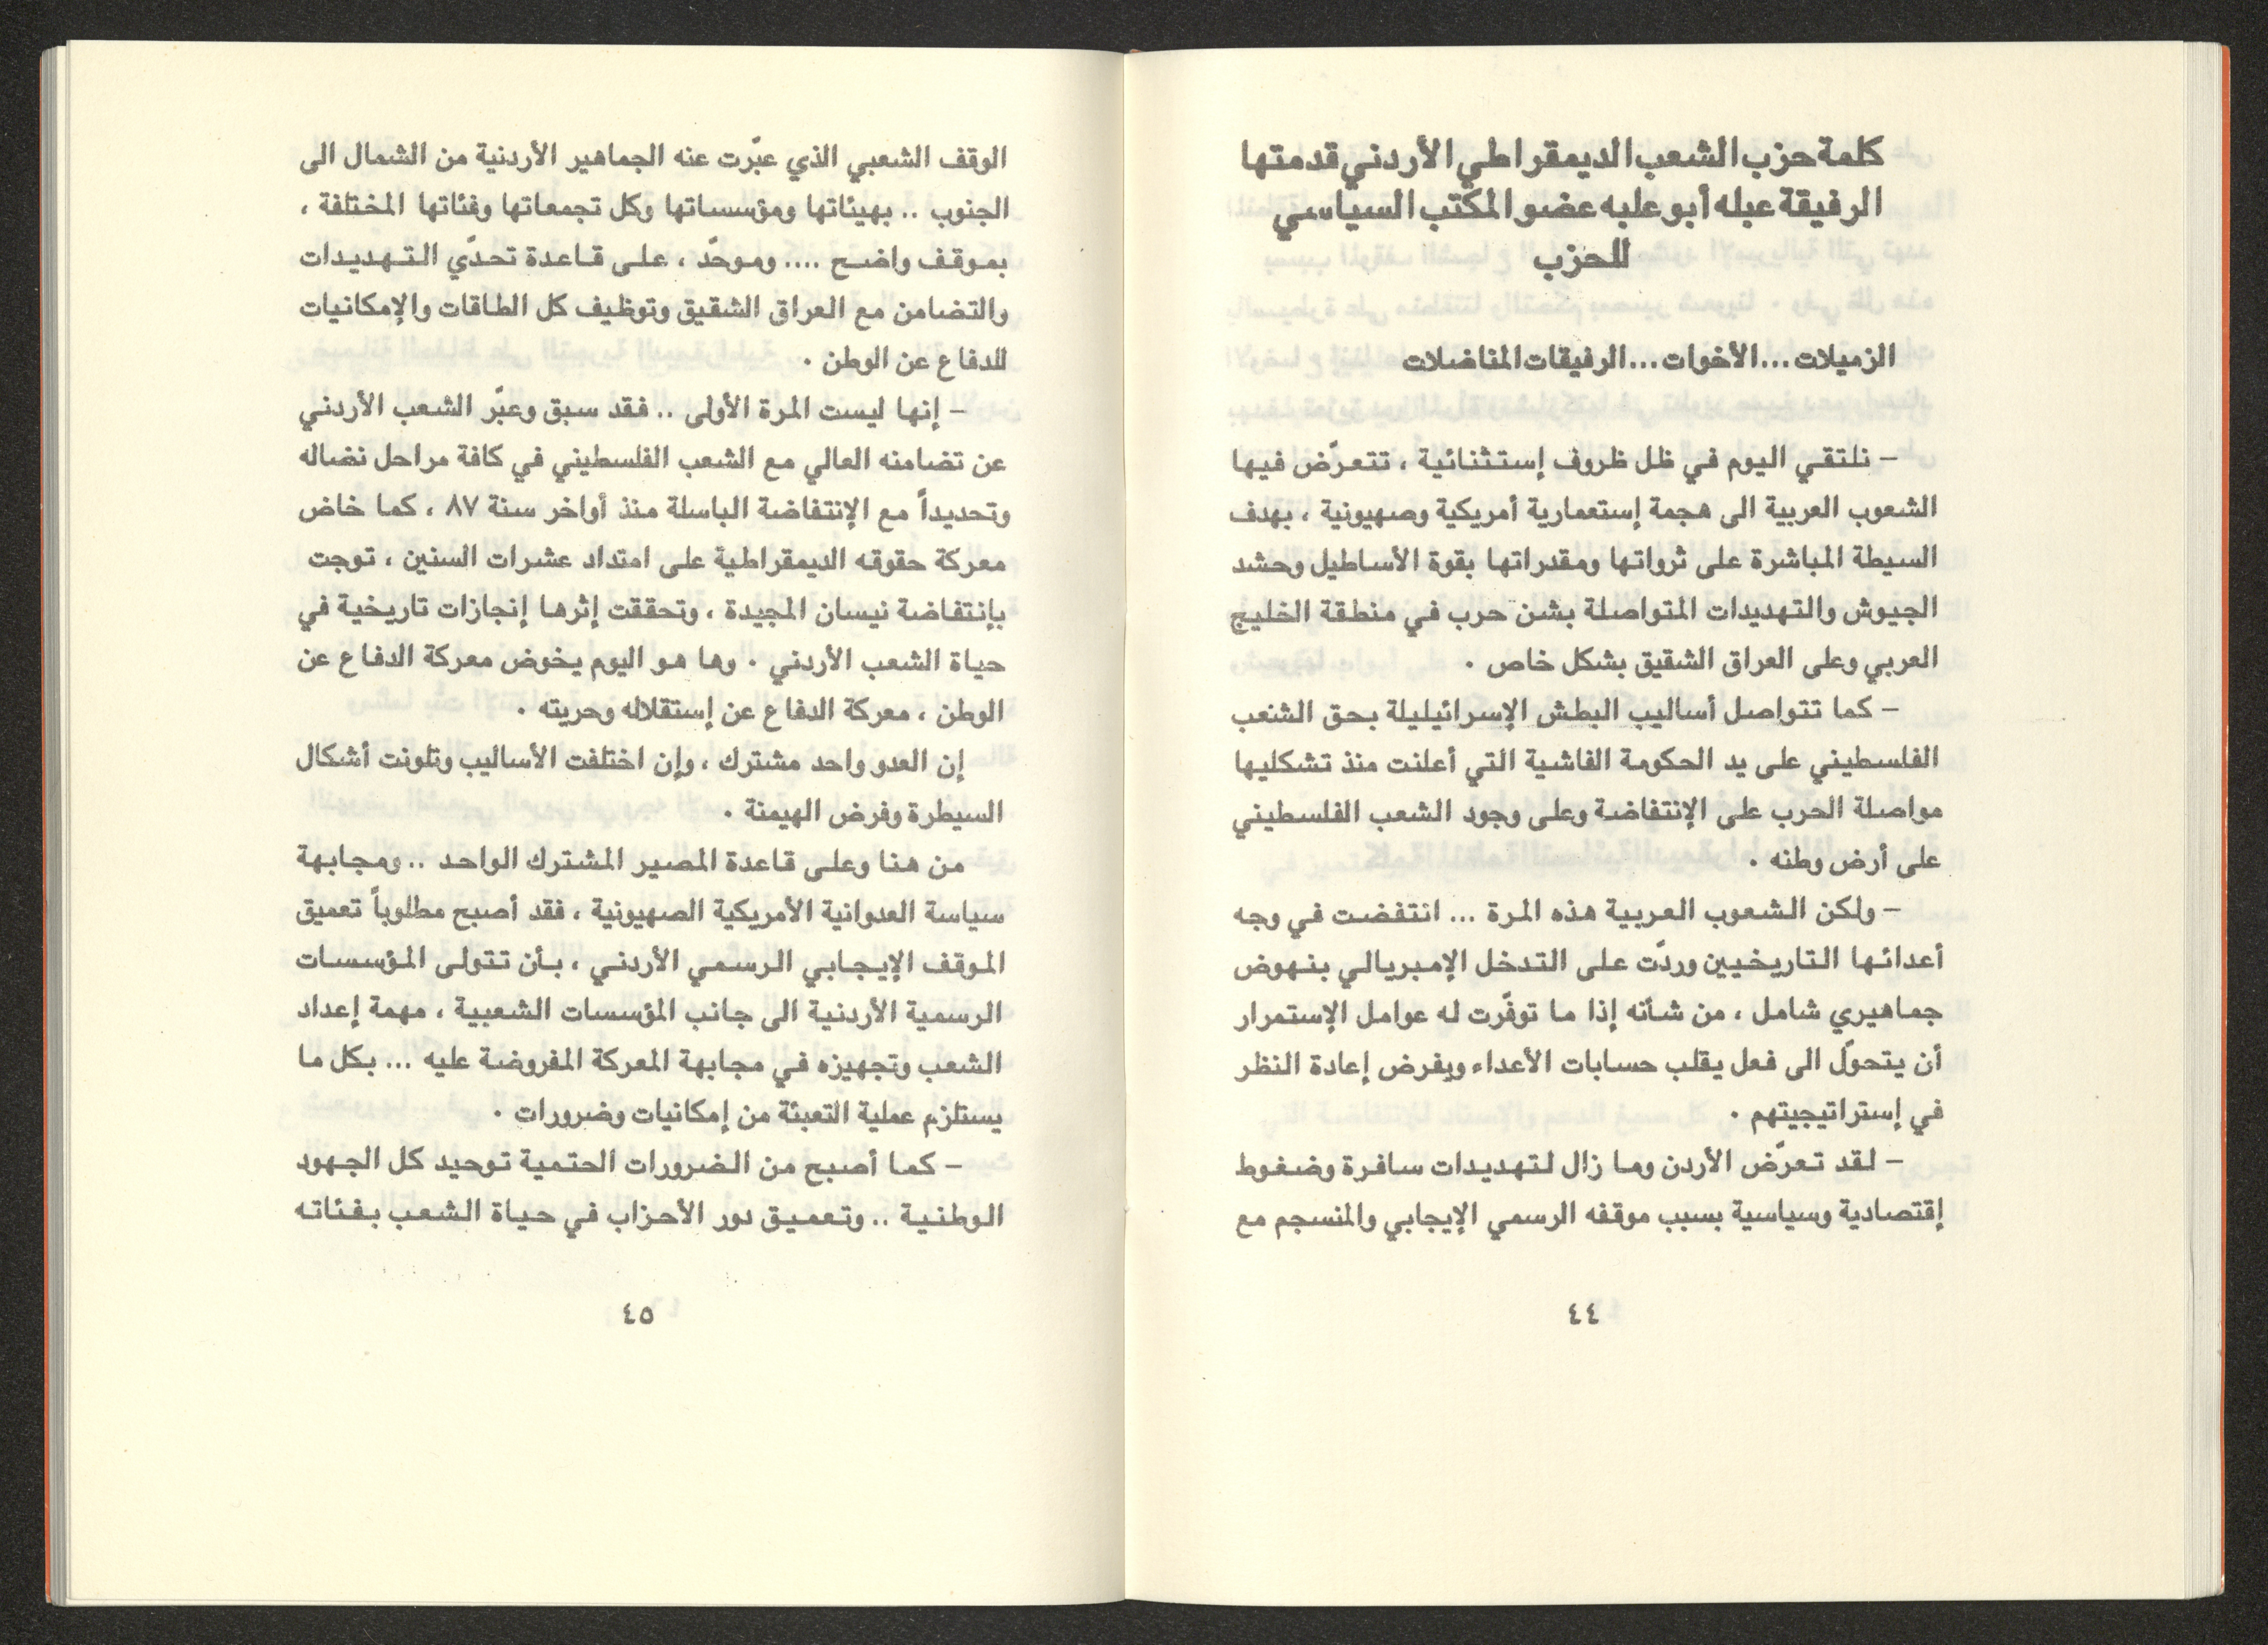 كلمة حزب الشعب الديمقراطي الأردني قدمتها
الرفيقة عبله أبو علبه عضو المكتب السياسي
للحزب
الزميلات ... الأخوات ... الرفيقات المناضلات
– نلتقي اليوم في ظل ظروف إستثنائية ، تتعرّض فيها
الشعوب العربية الى هجمة إستعمارية أمريكية وصهيونية ، بهدف
السيطة المباشرة على ثرواتها ومقدراتها بقوة الأساطيل وحشد
الجيوش والتهديدات المتواصلة بشن حرب في منطقة الخليج
العربي وعلى العراق الشقيق بشكل خاص .
– كما تتواصل أساليب البطش الإسرائيليلة بحق الشنعب
الفلسطيني على يد الحكومة الفاشية التي أعلنت منذ تشكليها
مواصلة الحرب على الإنتفاضة وعلى وجود الشعب الفلسطيني
على أرض وطنه .
– ولكن الشعوب العربية هذه المرة ... انتفضت في وجه
أعدائها التاريخيين وردّت على التدخل الإمبريالي بنهوض
جماهيري شامل ، من شأنه إذا ما توفّرت له عوامل الإستمرار
أن يتحوّل الى فعل يقلب حسابات الأعداء ويفرض إعادة النظر
في إستراتيجيتهم .
– لقد تعرّض الأردن وما زال لتهديدات سافرة وضغوط
إقتصادية وسياسية بسبب موقفه الرسمي الإيجابي والمنسجم مع
٤٤
الوقف الشعبي الذي عبّرت عنه الجماهير الأردنية من الشمال الى
الجنوب .. بهيئاتها ومؤسساتها وكل تجمعاتها وفئاتها المختلفة ،
بموقف واضح .... وموحّد ، على قاعدة تحدّي التهديدات
والتضامن مع العراق الشقيق وتوظيف كل الطاقات والإمكانيات
للدفاع عن الوطن .
– إنها ليست المرة الأولى .. فقد سبق وعبّر الشعب الأردني
عن تضامنه العالي مع الشعب الفلسطيني في كافة مراحل نضاله
وتحديداً مع الإنتفاضة الباسلة منذ أواخر سنة ٨٧ ، كما خاض
معركة حقوقه الديمقراطية على امتداد عشرات السنين ، توجت
بإنتفاضة نيسان المجيدة ، وتحققت إثرها إنجازات تاريخية في
حياة الشعب الأردني . وها هو اليوم يخوض معركة الدفاع عن
الوطن ، معركة الدفاع عن إستقلاله وحريته .
إن العدو واحد مشترك ، وإن اختلفت الأساليب وتلونت أشكال
السيطرة وفرض الهيمنة .
من هنا وعلى قاعدة المصير المشترك الواحد .. ومجابهة
سياسة العدوانية الأمريكية الصهيونية ، فقد أصبح مطلوباً تعميق
الموقف الإيجابي الرسمي الأردني ، بأن تتولى المؤسسات
الرسمية الأردنية الى جانب المؤسسات الشعبية ، مهمة إعداد
الشعب وتجهيزه في مجابهة المعركة المفروضة عليه ... بكل ما
يستلزم عملية التعبئة من إمكانيات وضرورات .
– كما أصبح من الضرورات الحتمية توحيد كل الجهود
الوطنية .. وتعميق دور الأحزاب في حياة الشعب بفئاته
٤٥